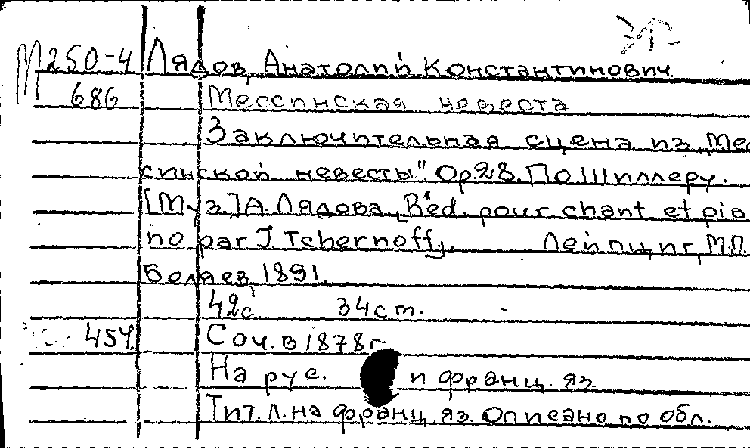 М250-4 Лядов, Анатолий Константинович
686 Мессинская невеста
Заключительная сцена из „Мес
синской невесты" Op28. По Шиллеру.
[Муз] А. Лядова, Réd. pour chant et pia
no par J. Tchernoff, Лейпциг, М.П.
Беляев, 1891.
42с 34ст.
454 Соч. в 1878г
На рус. и франц. яз
Тит. л. на франц. яз. Описано по обл.